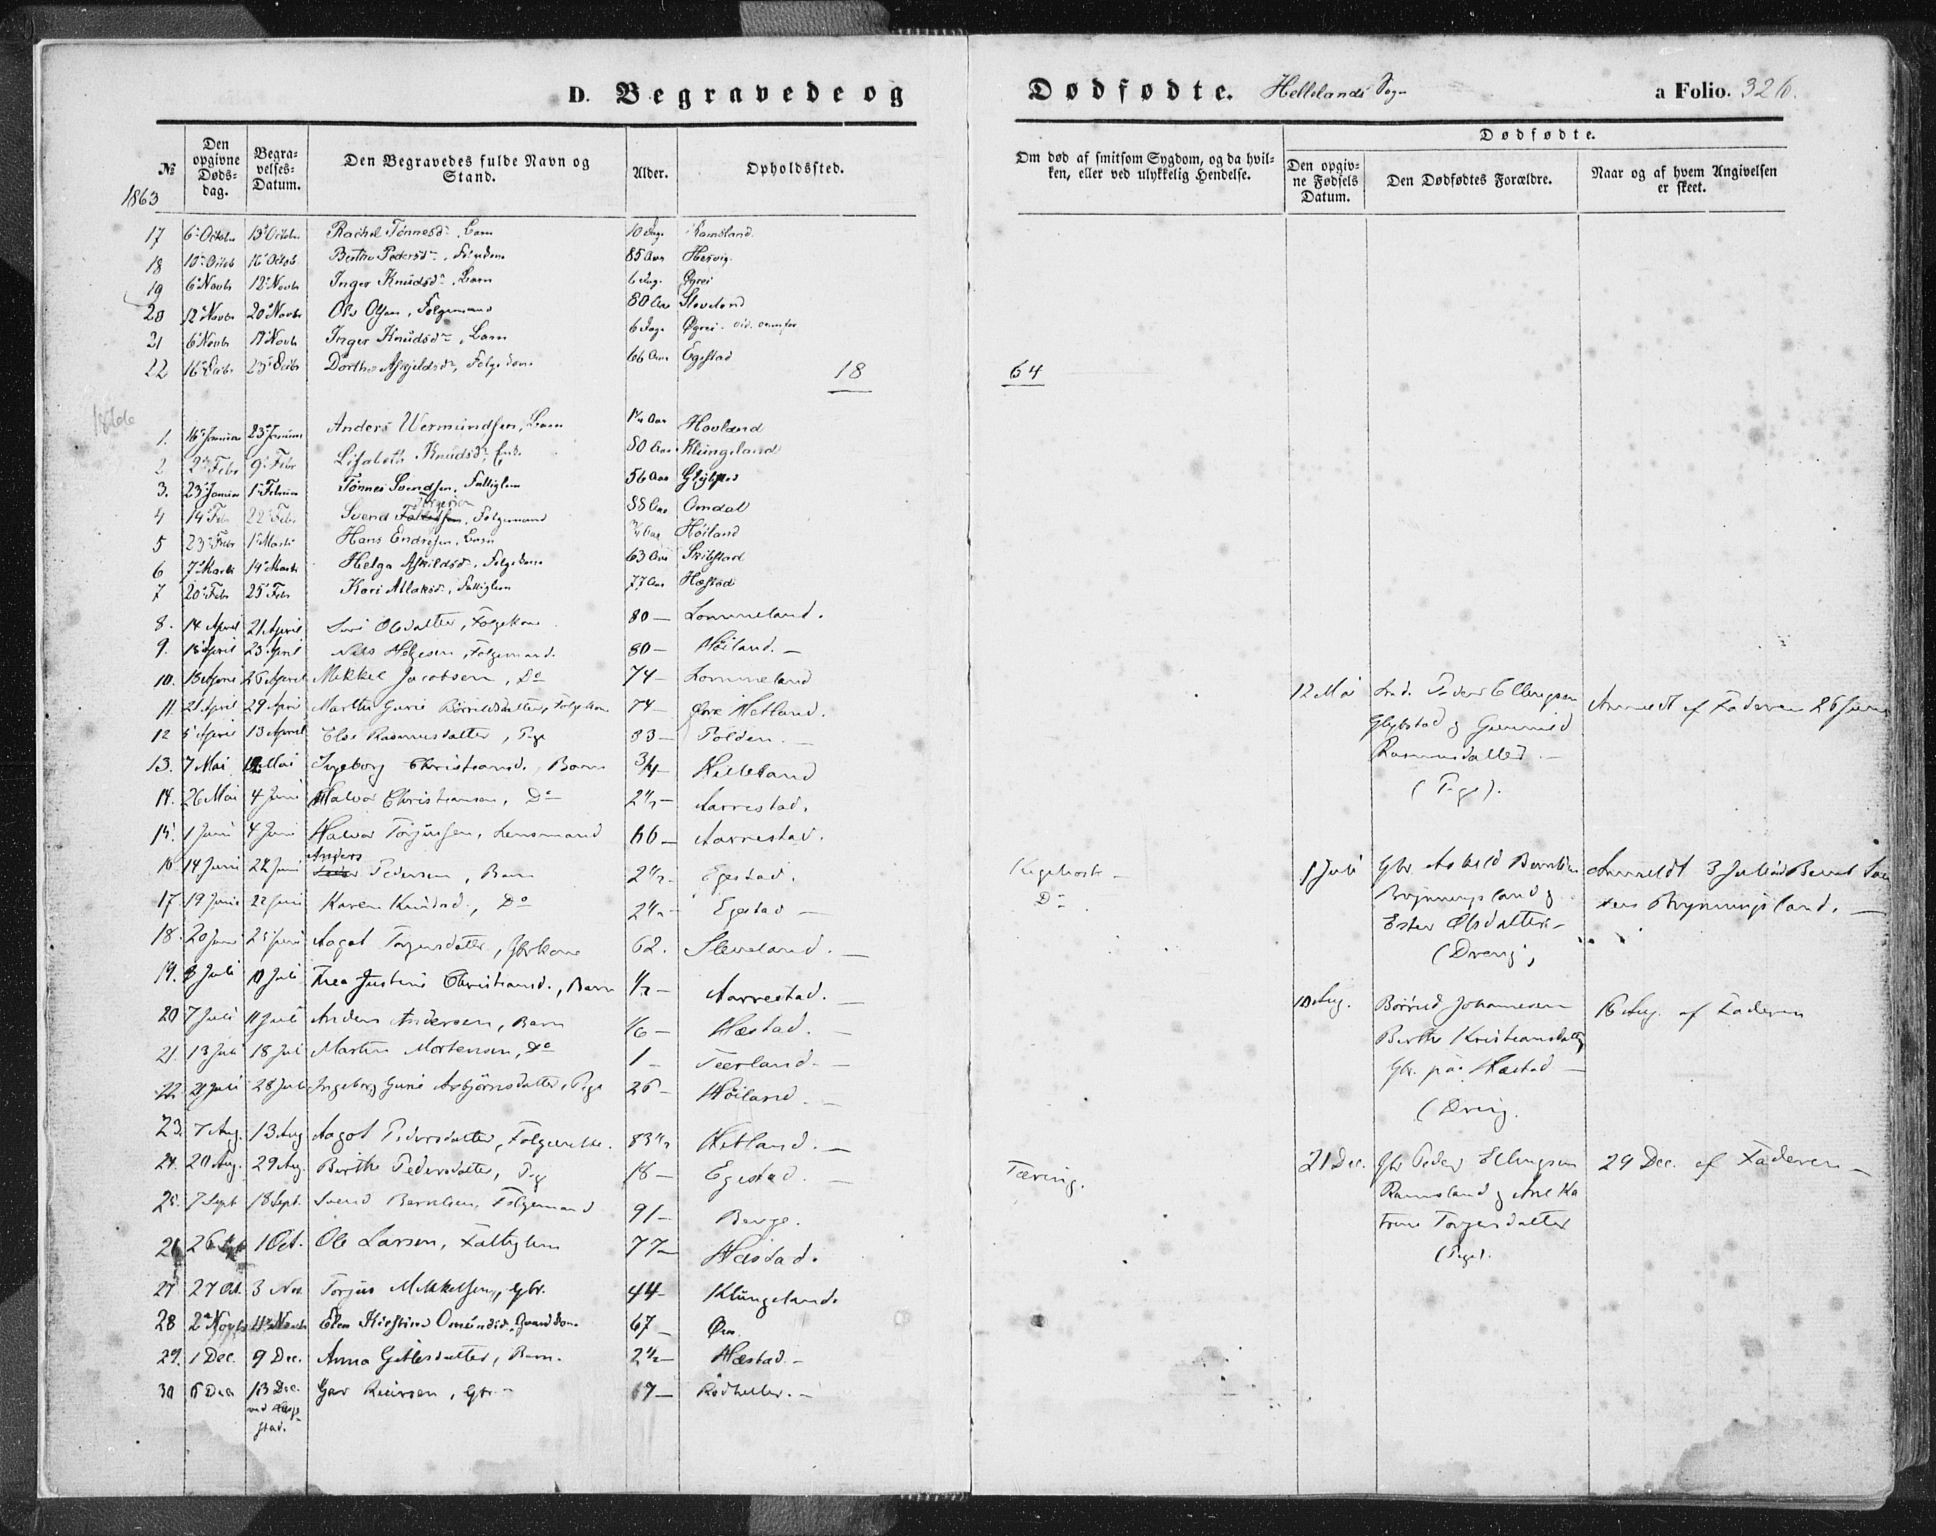 D. Begravede og Dødfødte. Hellelands Sogn a Folio. 326.
№ Den opgivne Døds-dag. Begra-velses-Datum. Den Begravedes fulde Navn og Stand. Alder. Opholdssted. Om død af smitsom Sygdom, og da hvil-ken, eller ved ulykkelig Hendelse. Dødfødte. Den opgiv-ne Fødsels Datum. Den Dødfødtes Forældre. Naar og af hvem Angivelsen er skeet.
1863
17 6 Octbr 13 Octbr Rachel Tønnesd., Barn 10 Dage Ramsland
18 10 Octob 16 Octob Berthe Pedersd. 85 Aar
19 6 Novbr 12 Novbr Inger Knudsd., Barn 6 Dage Øgrei
20 12 Novbr 20 Novbr Ole Olsen, Folgemand 80 Aar Sleveland
21 6 Novbr 12 Novbr Inger Knudsd., Barn 6 Dage Øgrei
22 16 Decbr 23 Decbr Dorthe Askjeldsd., Folgekone 66 Aar Egestad
18 64
1. 16 Januar 23 Januar Anders Wermundsen, Barn Hovland
2 2 Febr 9 Febr Lisabeth Knudsd., Enke 80 Aar Klungeland
3. 23 Januar 1 Februar Tønnes Svendsen, Fattiglem 56 Aar
4 14 Febr 22 Febr Svend Folgemand 88 Aar Omdal
5 23 Febr 1 Marts Hans Endresen, Barn Høiland
6 7 Marts 14 Marts Helga Askildsd., Folgekone 63 Aar
7 20 Febr 25 Febr Kari Atlaksd., Fattiglem 77 Aar Hæstad
8. 14 April 21 April Siri Olsdatter, Folgekone 80 – Lommeland.
9. 15 April 23 April Nils Helgesen, Folgemand. 80 – Høiland. –
10. 18 April 25 April Mikkel Jacobsen, Do 74 – Lommeland
11. 21 April 29 April Marthe Gurie Børrildsdatter, Folgekone 74 – Hetland.
12 5 April 13 April Else Rasmusdatter, Pige 33 – Polden. –
13. 7 Mai 12 Mai Ingeborg Christiansd., Barn 3/4 – Helleland
12 Mai Peder Ellingsen Glypstad og Gunnild Rasmusdatter. – (Pige).
Anmeldt af Faderen 26 Juni
14. 26 Mai 4 Juni Halvor Christiansen, Do 2 1/2 – Aarrestad.
15. 1 Juni 4 Juni Halvor Torjussen, Lensmand 66 – Aarrestad.
16 14 Juni 22 Juni Anders Pedersen, Barn 2 1/2 – Egestad. Kigehoste –
17. 19 Juni 22 Juni Karen Knudsd., Do 2 1/2 – Egestad – Do
1 Juli Gbr. Askild Berntsen Brynningsland og Ester Olsdatter – (Dreng)
Anmeldt 3 Juli Bernt Brynningsland. –
18. 20 Juni 25 Juni Aagot Torgersdatter, Gbrkone 62. Sleveland. –
19. 3 Juli 10 Juli Thea Justine Christiansd., Barn 1/2 – Aarrestad. –
20 7 Juli 11 Juli Anders Andersen, Barn 1/6 – Hæstad. –
10 Aug. Børrild Johannesen Berthe Kristiansdatter Gbr. på Hæstad – (Dreng.
16 Aug. af Faderen
21. 13 Juli 18 Juli Martin Mortensen, Do 1 – Teerland. –
22. 21 Juli 28 Juli Ingeborg Gurie Asbjørnsdatter, Pige 26 – Høiland. –
23. 7 Aug. 13 Aug Aagot Pedersdatter, 83 1/2 Hetland. –
24. 20 Aug. 29 Aug. Berthe Pedersdatter, Pige 18 – Egestad. – Tæring.
21 Dec. Gbr Peder Ellingsen Ramsland og Ane Katrine Torgersdatter (Pige).
29 Dec. af Faderen –
25. 7 Sept 18 Sept. Svend Berntsen, Folgemand 91 – Berge.
26 26 Sept 1 Oct. Ole Larsen, Fattiglem 77 – Hæstad.
27 27 Oct. 3 Nov. Torjus Mikkelsen, Gbr. 44 – Klungeland.
28 2 Novbr 11 Novbr Elen Kirstine Omundsd. 67 –
29. 1 Dec. 9 Dec. Anna Gitlesdatter, Barn. 2 1/2 – Hæstad. –
30 6 Dec 13 Dec. Gbr. – Rødheller. –